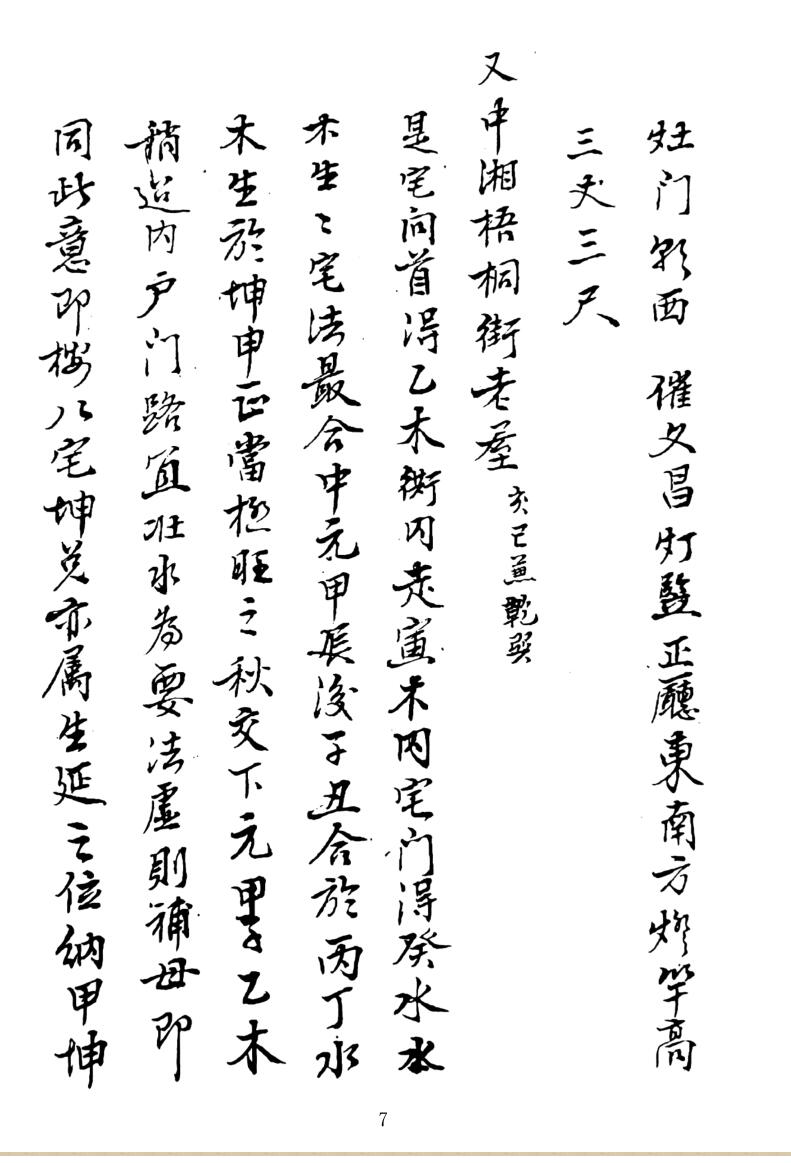 灶门朝西　催文昌灯竪正廳東南方燈竿高
三丈三尺
又中湘梧桐街老屋　亥巳兼乾巽
是宅向首得乙木衖内走寅木内宅门得癸水水
木生〻宅法最合中元甲辰後子丑合於丙丁水
木生於坤申正當極旺之秋交下元甲子乙木
稍退内户门路宜壮水為要法虛則補母即
同此意即按八宅坤兑亦属生延之位納甲坤
7